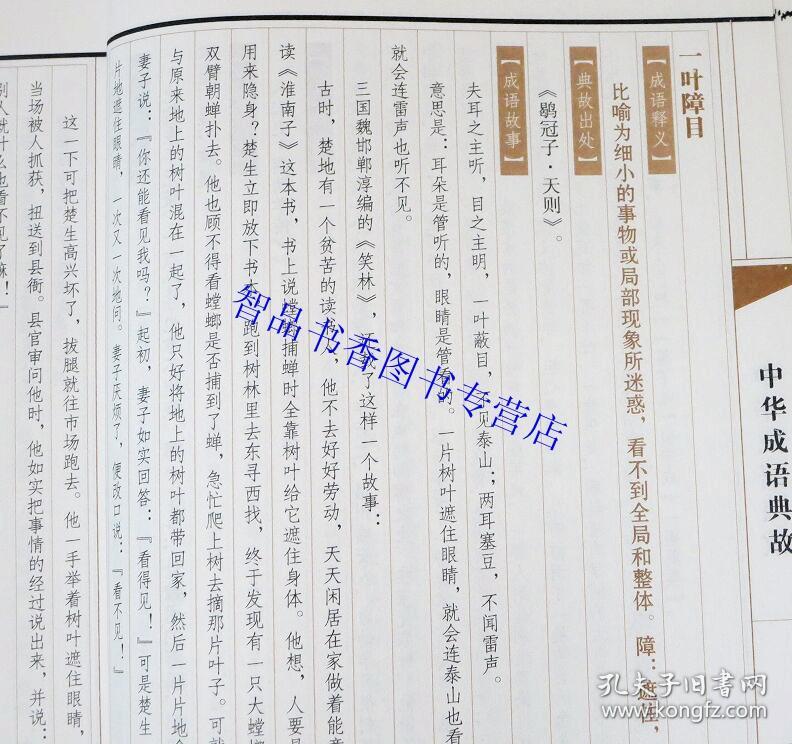 中华成语典故
一叶障目
【成语释义】
比喻为细小的事物或局部现象所迷惑，看不到全局和整体。障：遮住，
【典故出处】
《鹖冠子·天则》。
【成语故事】
夫耳之主听，目之主明，一叶蔽目，见泰山；两耳塞豆，不闻雷声。
意思是：耳朵是管听的，眼睛是管看的。一片树叶遮住眼睛，就会连泰山也看
就会连雷声也听不见。
三国魏邯郸淳编的《笑林》，了这样一个故事：
古时，楚地有一个贫苦的读，他不去好好劳动，天天闲居在家做着能意
读《淮南子》这本书，书上说螳螂捕蝉时全靠树叶给它遮住身体。他想，人要是
用来隐身？楚生立即放下书本跑到树林里去东寻西找，终于发现有一只大螳螂
双臂朝蝉扑去。他也顾不得看螳螂是否捕到了蝉，急忙爬上树去摘那片叶子。可就
与原来地上的树叶混在一起了，他只好将地上的树叶都带回家，然后一片片地
妻子说：『你还能看见我吗？』起初，妻子如实回答：『看得见！』可是楚生
片地遮住眼睛，一次又一次地问。妻子厌烦了，便改口说：『看不见！』
这一下可把楚生高兴坏了，拔腿就往市场跑去。他一手举着树叶遮住眼睛，
当场被人抓获，扭送到县衙。县官审问他时，他如实把事情的经过说出来，并说：
别人就什么也看不见了嘛！』
智品书香图书专营店
孔夫子旧书网
www.kongfz.com